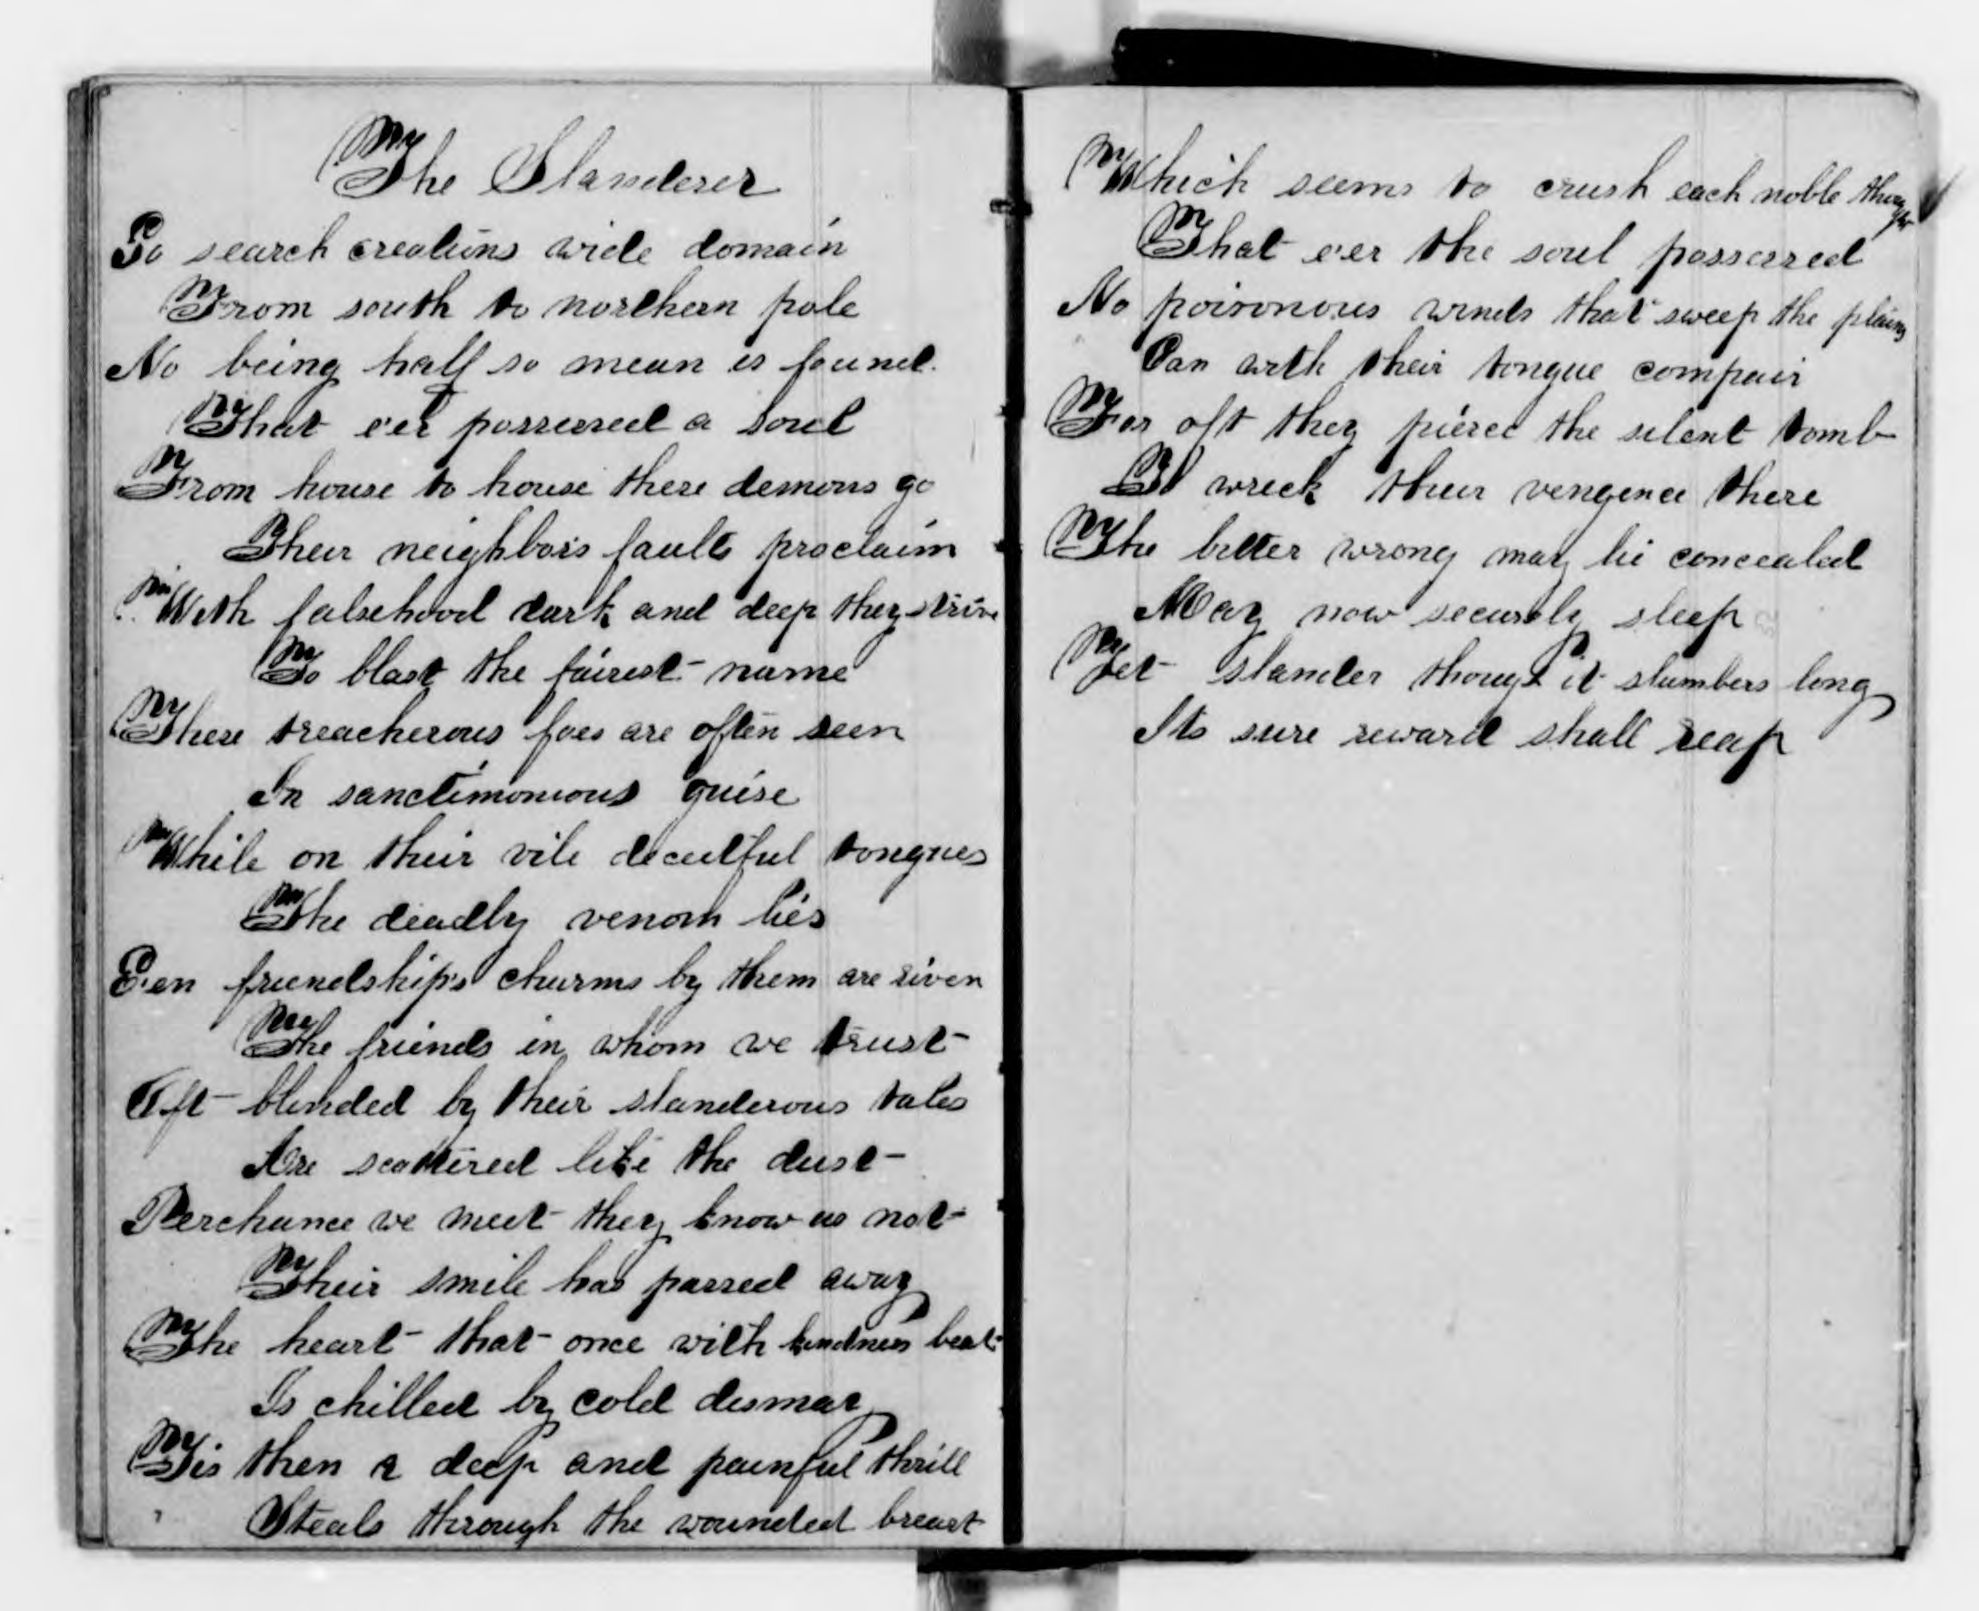 The Slanderer
Go search creations wide domain
From south to northern pole
No being half so mean is found
That e'er possessed a soul
From house to house these demons go
Their neighbors faults proclaim
With falsehood dark and deep they strive
To blast the fairest name
These treacherous foes are often seen
In sanctimonious guise
While on their vile deceitful tongues
The deadly venom lies
E'en friendship's charms by them are riven
The friends in whom we trust
Oft blinded by their slanderous tales
Are scattered like the dust
Perchance we meet they know us not
Their smile has passed away
The heart that once with kindness beat
Is chilled by cold dismay
Tis then a deep and painful thrill
Steals through the wounded breast
Which seems to crush each noble
That e'er the soul possessed
No poisonous winds that sweep the plains
Can with their tongue compair
For oft they pierce the silent tomb
wreck their vengence there
The bitter wrong may lie concealed
May now securely sleep
Yet slander though it slumbers long
Its sure reward shall reap